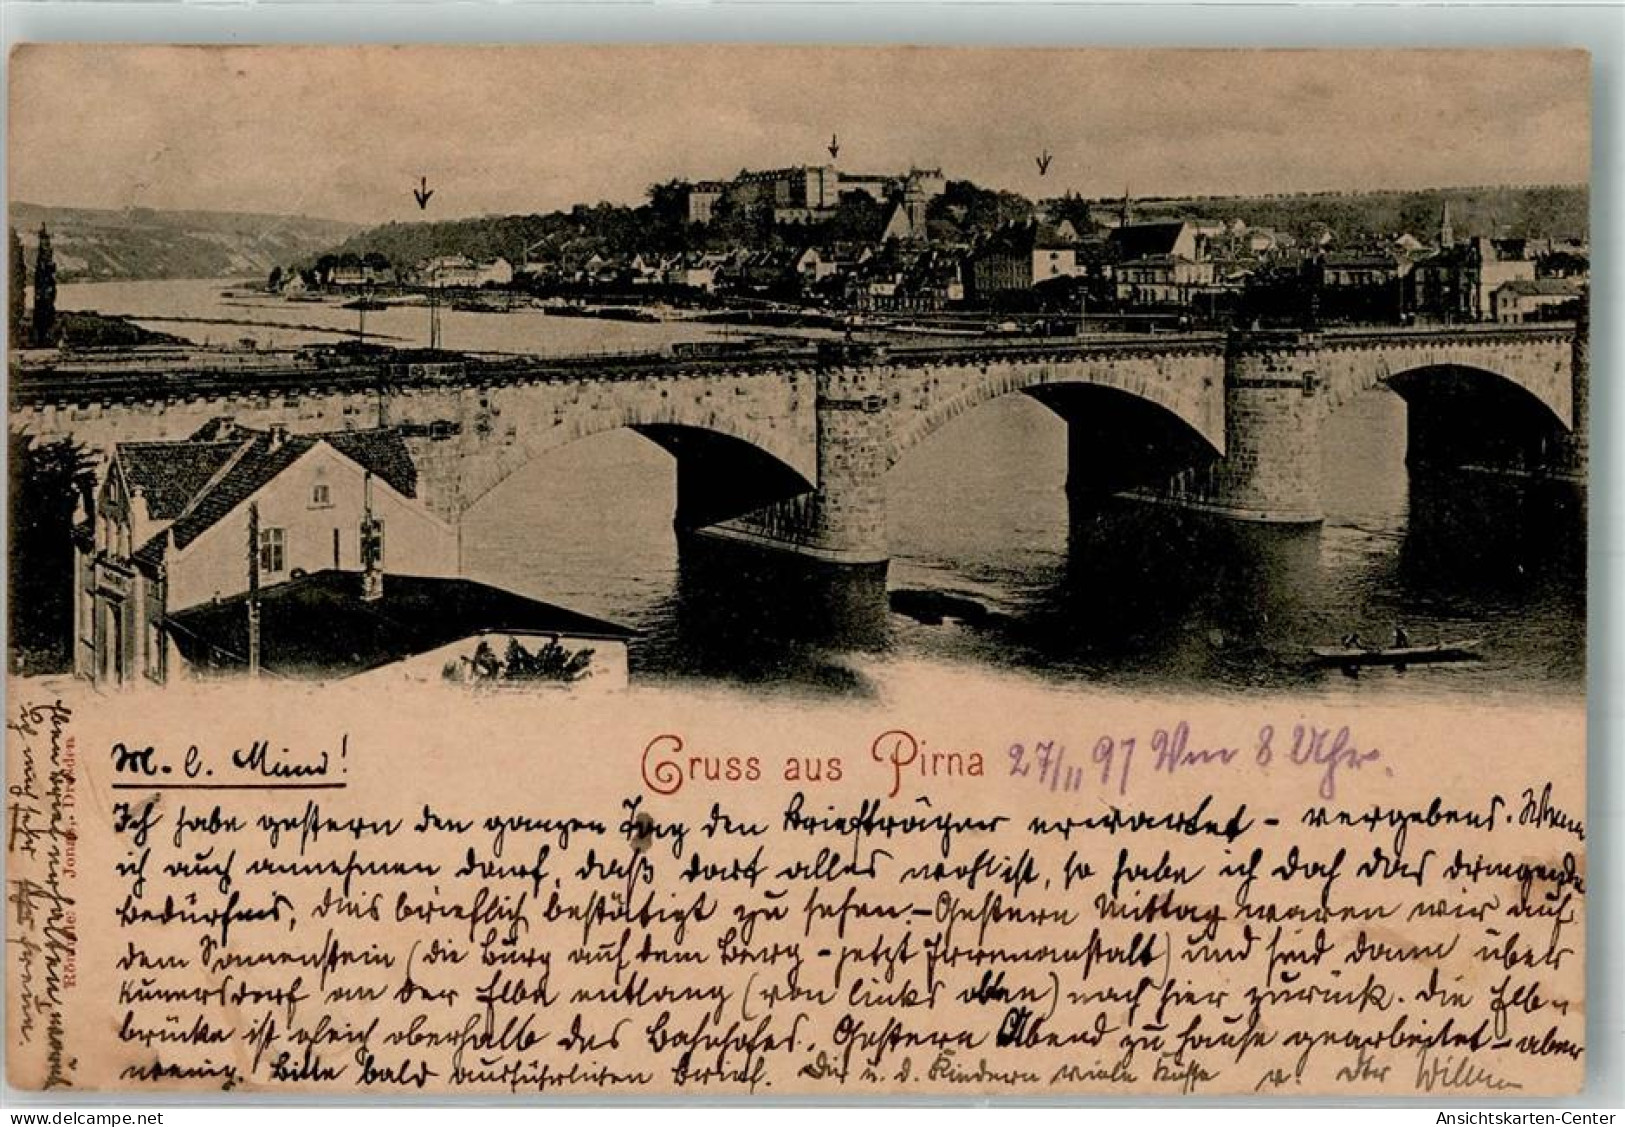 M. l. Minnd!
Gruss aus Pirna 27/11 97 Vm 8 Uhr.
Ich habe gestern den ganzen Tag den Briefträger erwartet - vergebens. Wenn
ich auch annehmen darf, daß dort alles wohl ist, so habe ich doch das dringende
Bedürfnis, dies brieflich bestätigt zu sehen. - Gestern Mittag waren wir auf
dem Sonnenstein (die Burg auf dem Berg - jetzt Irrenanstalt) und sind dann über
Kunersdorf an der Elbe entlang (von links oben) nach hier zurück. Die Elb-
brücke ist gleich oberhalb des Bahnhofes. Gestern Abend zu Hause gearbeitet - aber
wenig. Bitte bald ausführlichen Brief. Dir u. d. Kindern viele Küsse v.
Jonas, Dresden
Ansichtskarten-Center
www.delcampe.net